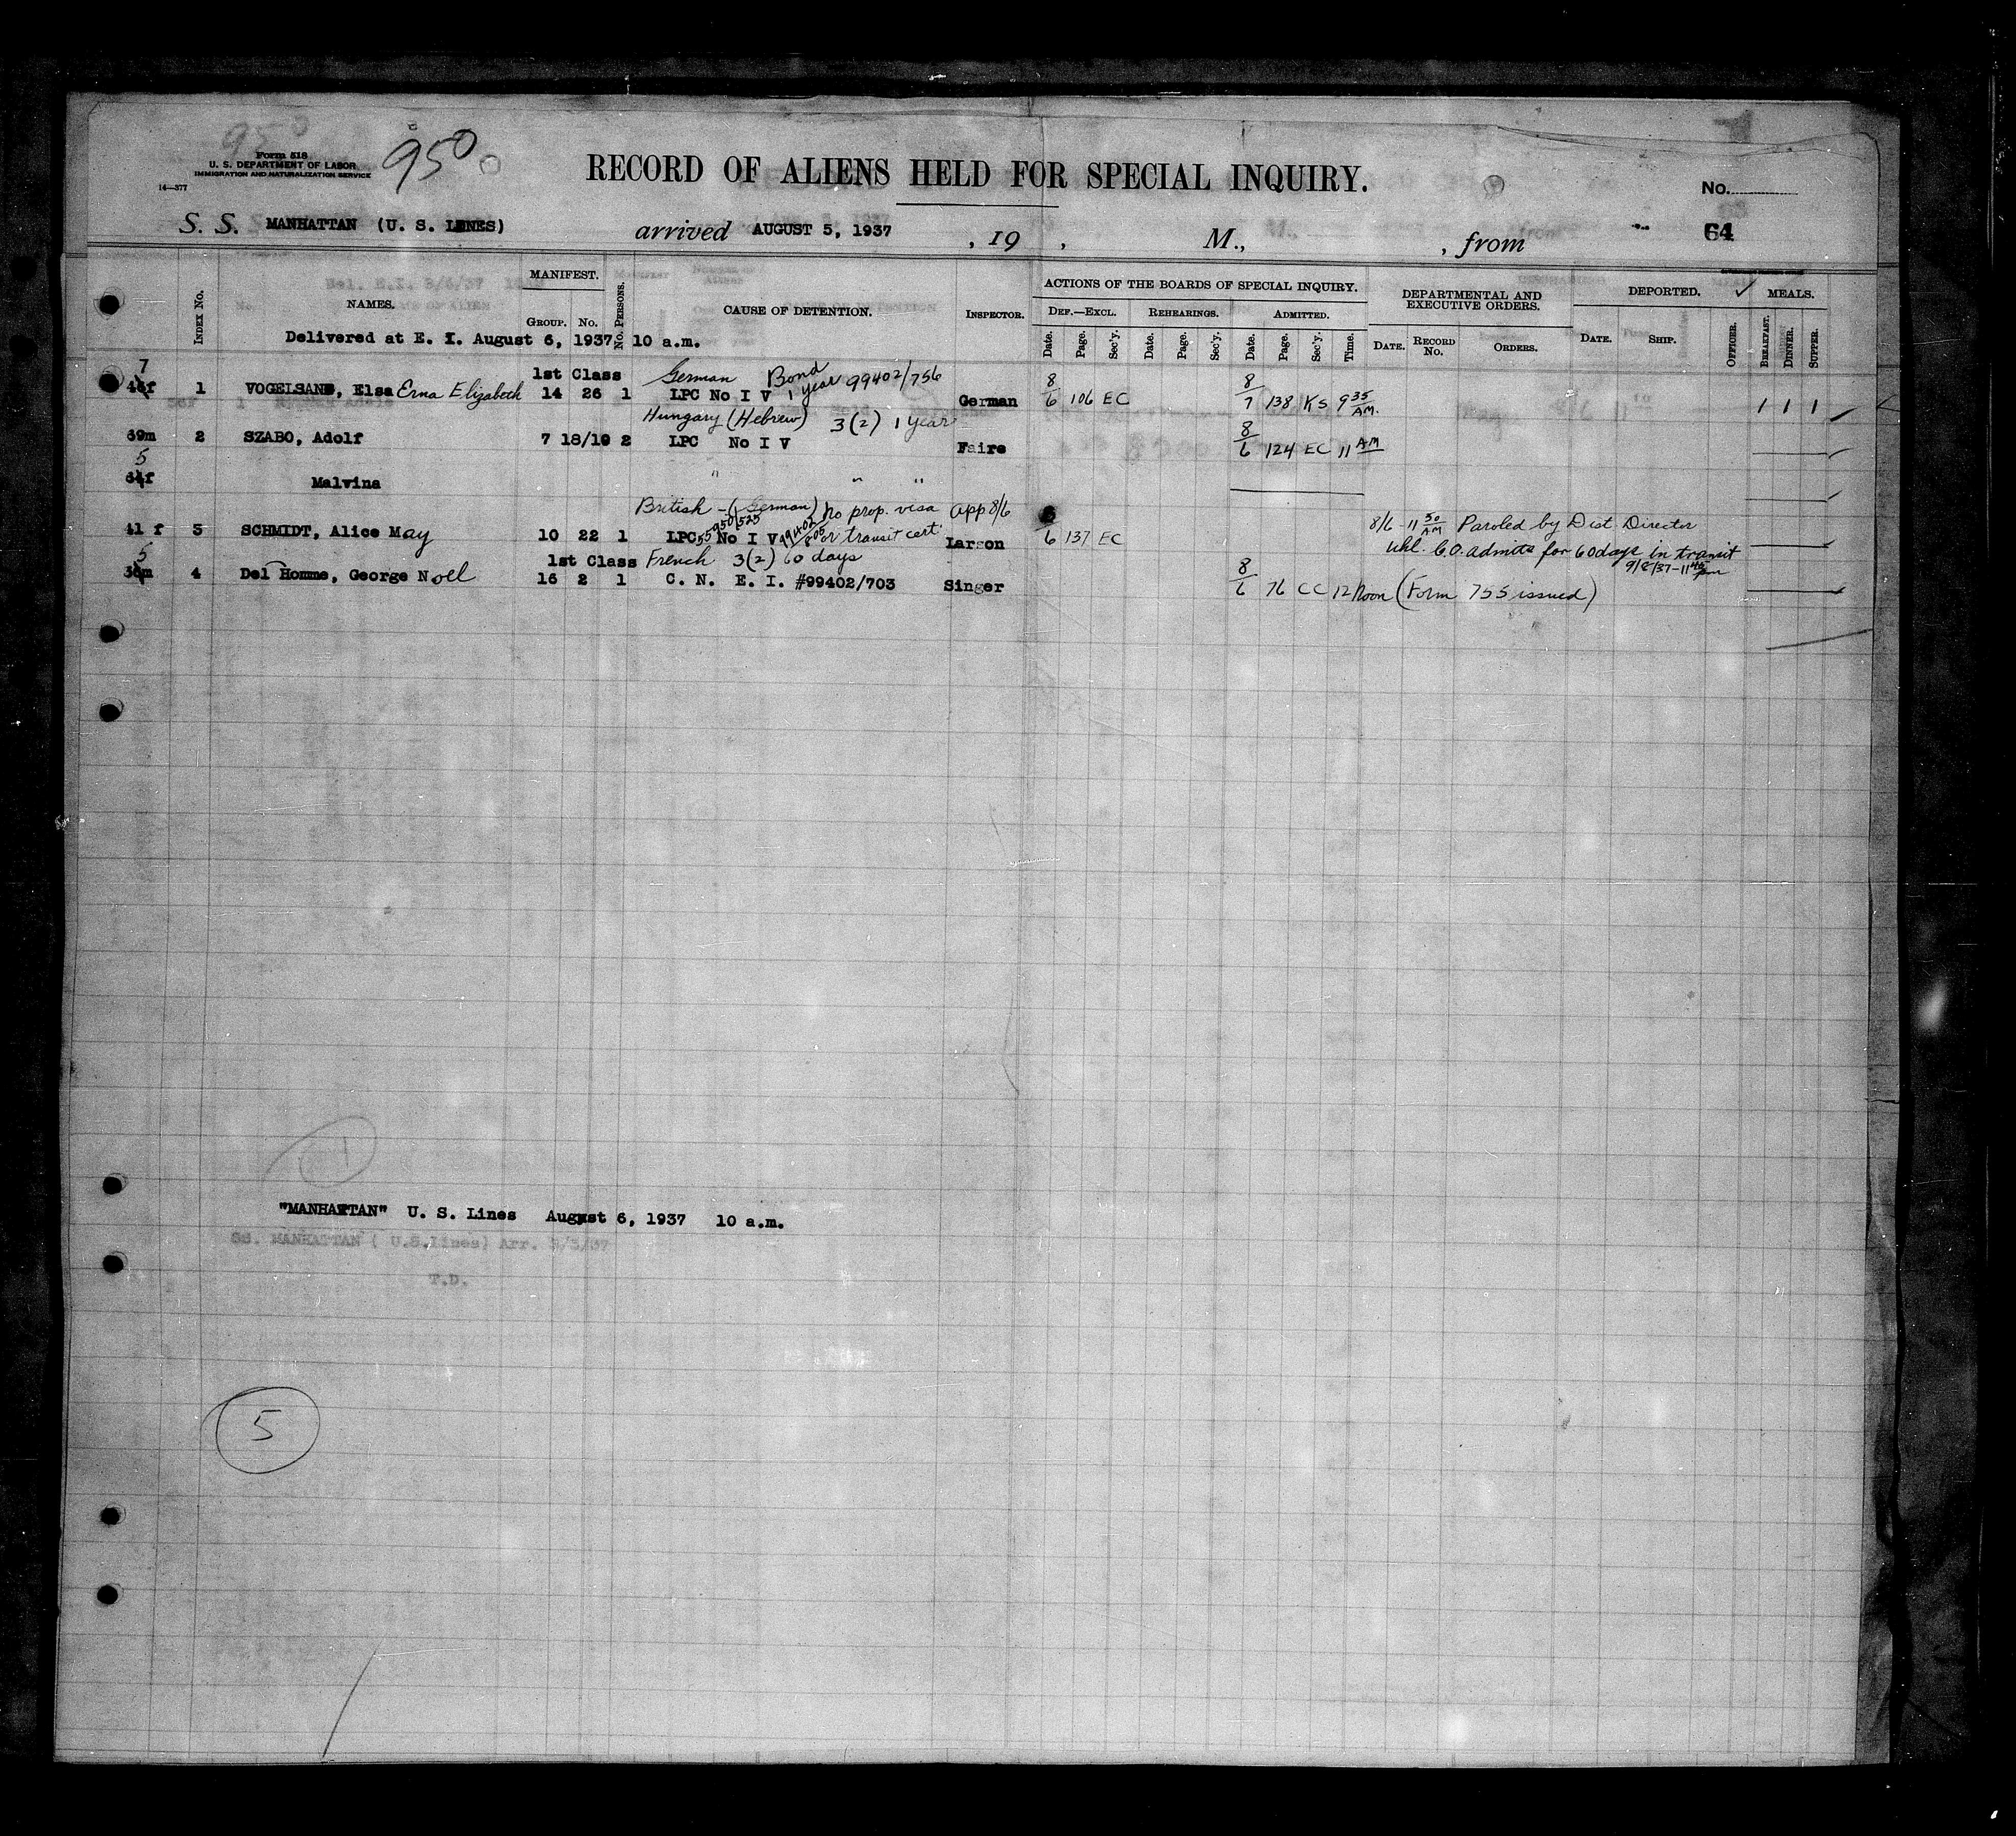 950
Form 518
U. S. DEPARTMENT OF LABOR
IMMIGRATION AND NATURALIZATION SERVICE
14—377
950
RECORD OF ALIENS HELD FOR SPECIAL INQUIRY.
No.
S. S. MANHATTAN (U. S. LINES) arrived AUGUST 5, 1937 , 19 , M., , from
64
INDEX No. NAMES. MANIFEST. GROUP. No. No. PERSONS. CAUSE OF DETENTION. INSPECTOR. ACTIONS OF THE BOARDS OF SPECIAL INQUIRY. DEF.—EXCL. Date. Page. Sec'y. REHEARINGS. Date. Page. Sec'y. ADMITTED. Date. Page. Sec'y. Time. DEPARTMENTAL AND EXECUTIVE ORDERS. DATE. RECORD No. ORDERS. DEPORTED. DATE. SHIP. OFFICER. MEALS. BREAKFAST. DINNER. SUPPER.
Delivered at E. I. August 6, 1937 10 a.m.
7 1st Class German Bond
1 VOGELSAND, Elsa Erna Elizabeth 14 26 1 LPC No I V 1 year 99402/756 German 8/6 106 EC 8/7 138 KS 9 35 AM. 1 1 1
Hungary (Hebrew) 3(2) 1 year
39m 2 SZABO, Adolf 7 18/19 2 LPC No I V Faire 8/6 124 EC 11 AM
5
Malvina " " "
British - (German) No prop. visa app 8/6
41 f 3 SCHMIDT, Alice May 10 22 1 LPC No I V or transit cert Larson 8/6 137 EC 8/6 - 11 50 AM Paroled by Dist. Director
Uhl. C.O. admits for 60 days in transit
9/8/37 - 11 45
5 1st Class French 3(2) 60 days
4 Del Homme, George Noel 16 2 1 C. N. E. I. #99402/703 Singer 8/6 76 CC 12 Noon (Form 755 issued)
1
"MANHATTAN" U. S. Lines August 6, 1937 10 a.m.
SS. MANHATTAN ( U.S.Lines) Arr. 3/3/37
T.D.
5